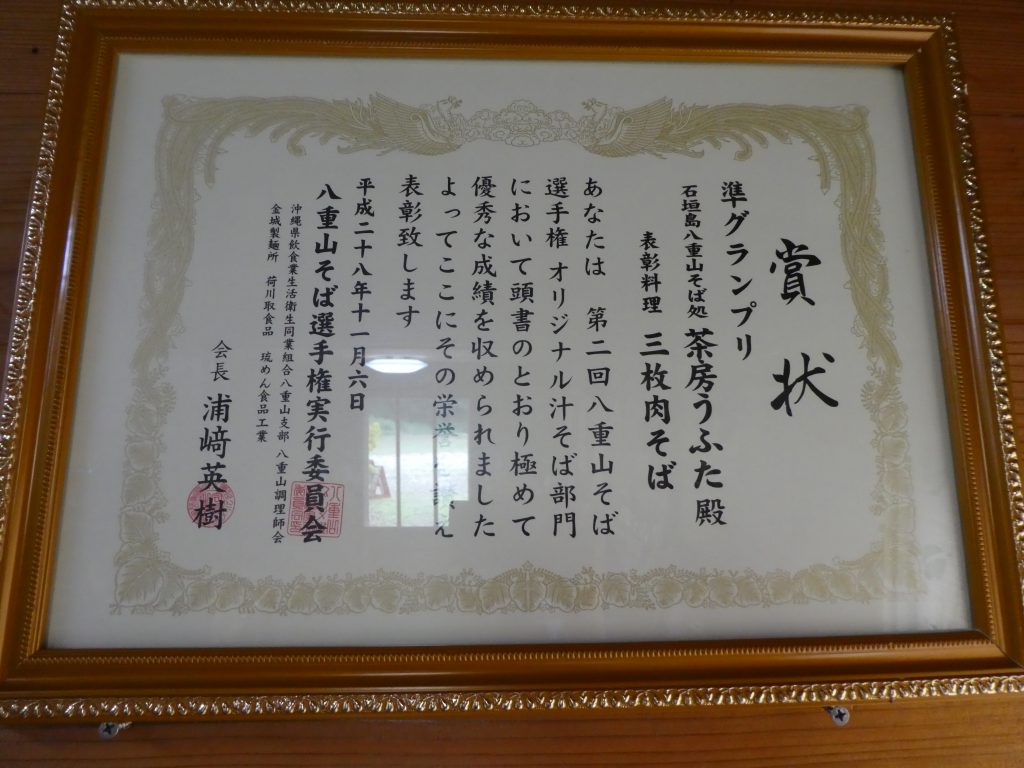 賞状
準グランプリ
石垣島八重山そば処 茶房うふた 殿
表彰料理 三枚肉そば
あなたは 第二回八重山そば
選手権 オリジナル汁そば部門
において頭書のとおり極めて
優秀な成績を収められました
よってここにその栄誉
表彰致します
平成二十八年十一月六日
八重山そば選手権実行委員会
沖縄県飲食業生活衛生同業組合八重山支部 八重山調理師会
金城製麺所 荷川取食品 琉めん食品工業
会長 浦﨑英樹